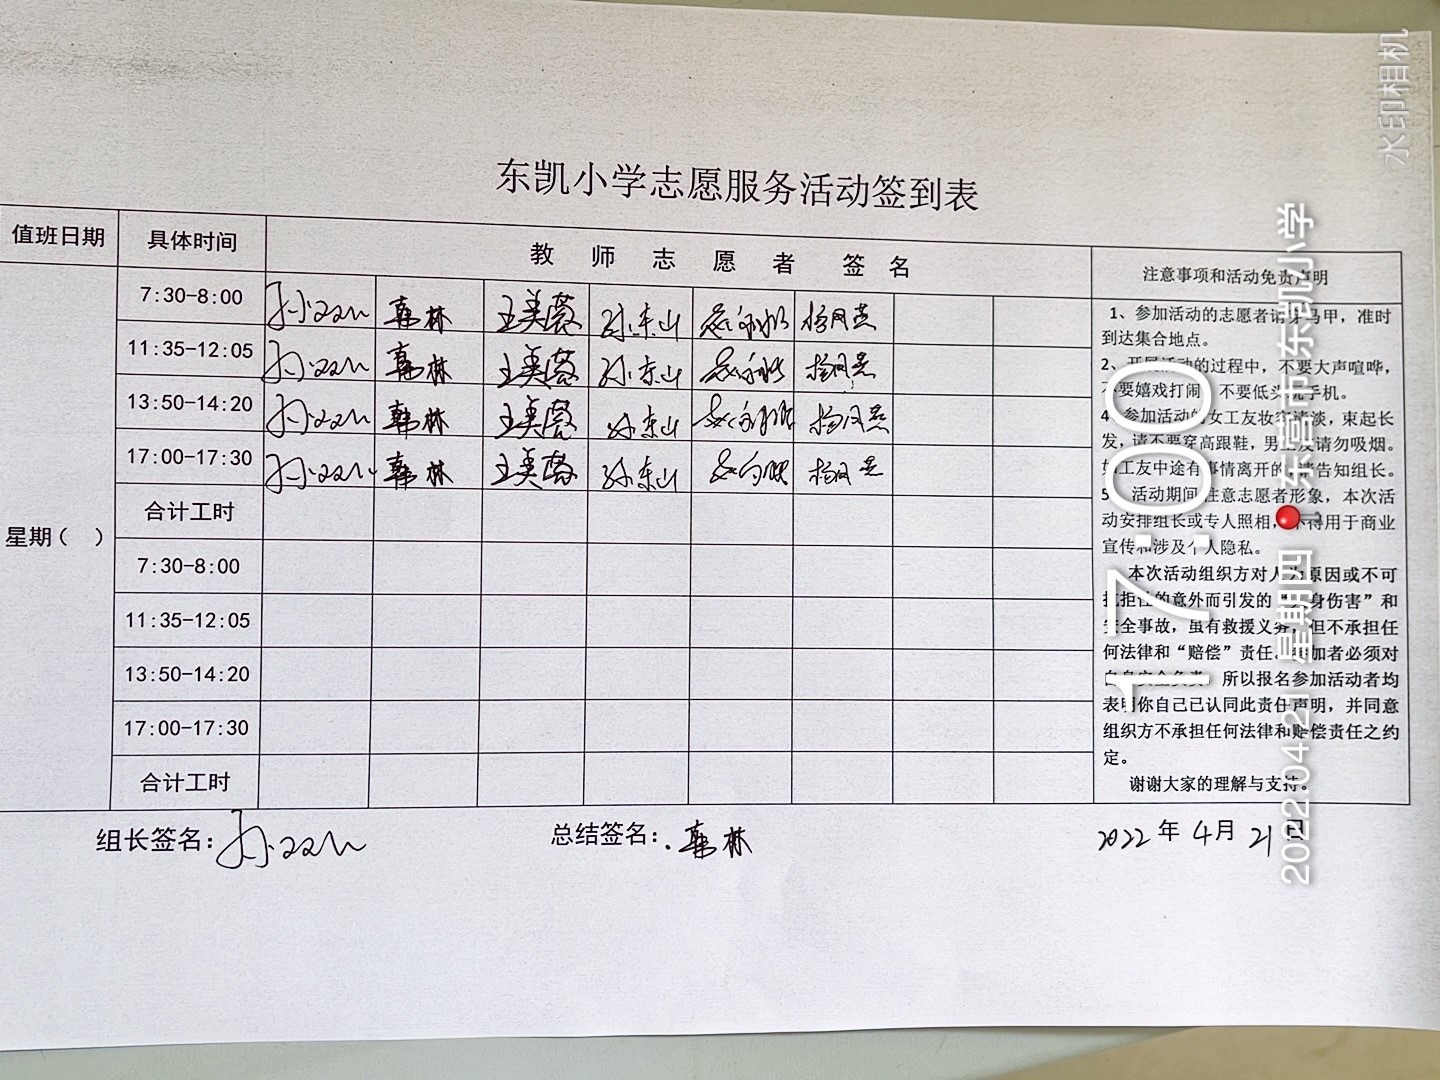 水印相机
东凯小学志愿服务活动签到表
值班日期 具体时间 教师志愿者签名 注意事项和活动免责声明
7:30-8:00 韩林 王美薇 孙东山
11:35-12:05 韩林 王美薇 孙东山
13:50-14:20 韩林 王美薇 孙东山
17:00-17:30 韩林 王美薇 孙东山
合计工时
星期( )
7:30-8:00
11:35-12:05
13:50-14:20
17:00-17:30
合计工时
1、参加活动的志愿者请穿马甲，准时
到达集合地点。
2、开展活动的过程中，不要大声喧哗，
不要嬉戏打闹，不要低头玩手机。
4、参加活动的女工友妆容清淡，束起长
发，请不要穿高跟鞋，男工友请勿吸烟。
如工友中途有事情离开的，请告知组长。
5、活动期间注意志愿者形象，本次活
动安排组长或专人照相，不得用于商业
宣传和涉及个人隐私。
本次活动组织方对人为原因或不可
抗拒性的意外而引发的“人身伤害”和
安全事故，虽有救援义务，但不承担任
何法律和“赔偿”责任。参加者必须对
自身安全负责，所以报名参加活动者均
表明你自己已认同此责任声明，并同意
组织方不承担任何法律和赔偿责任之约
定。
谢谢大家的理解与支持。
组长签名： 总结签名：韩林 2022年4月21日
17:00
2022.04.21 星期四 东莞市·东凯小学